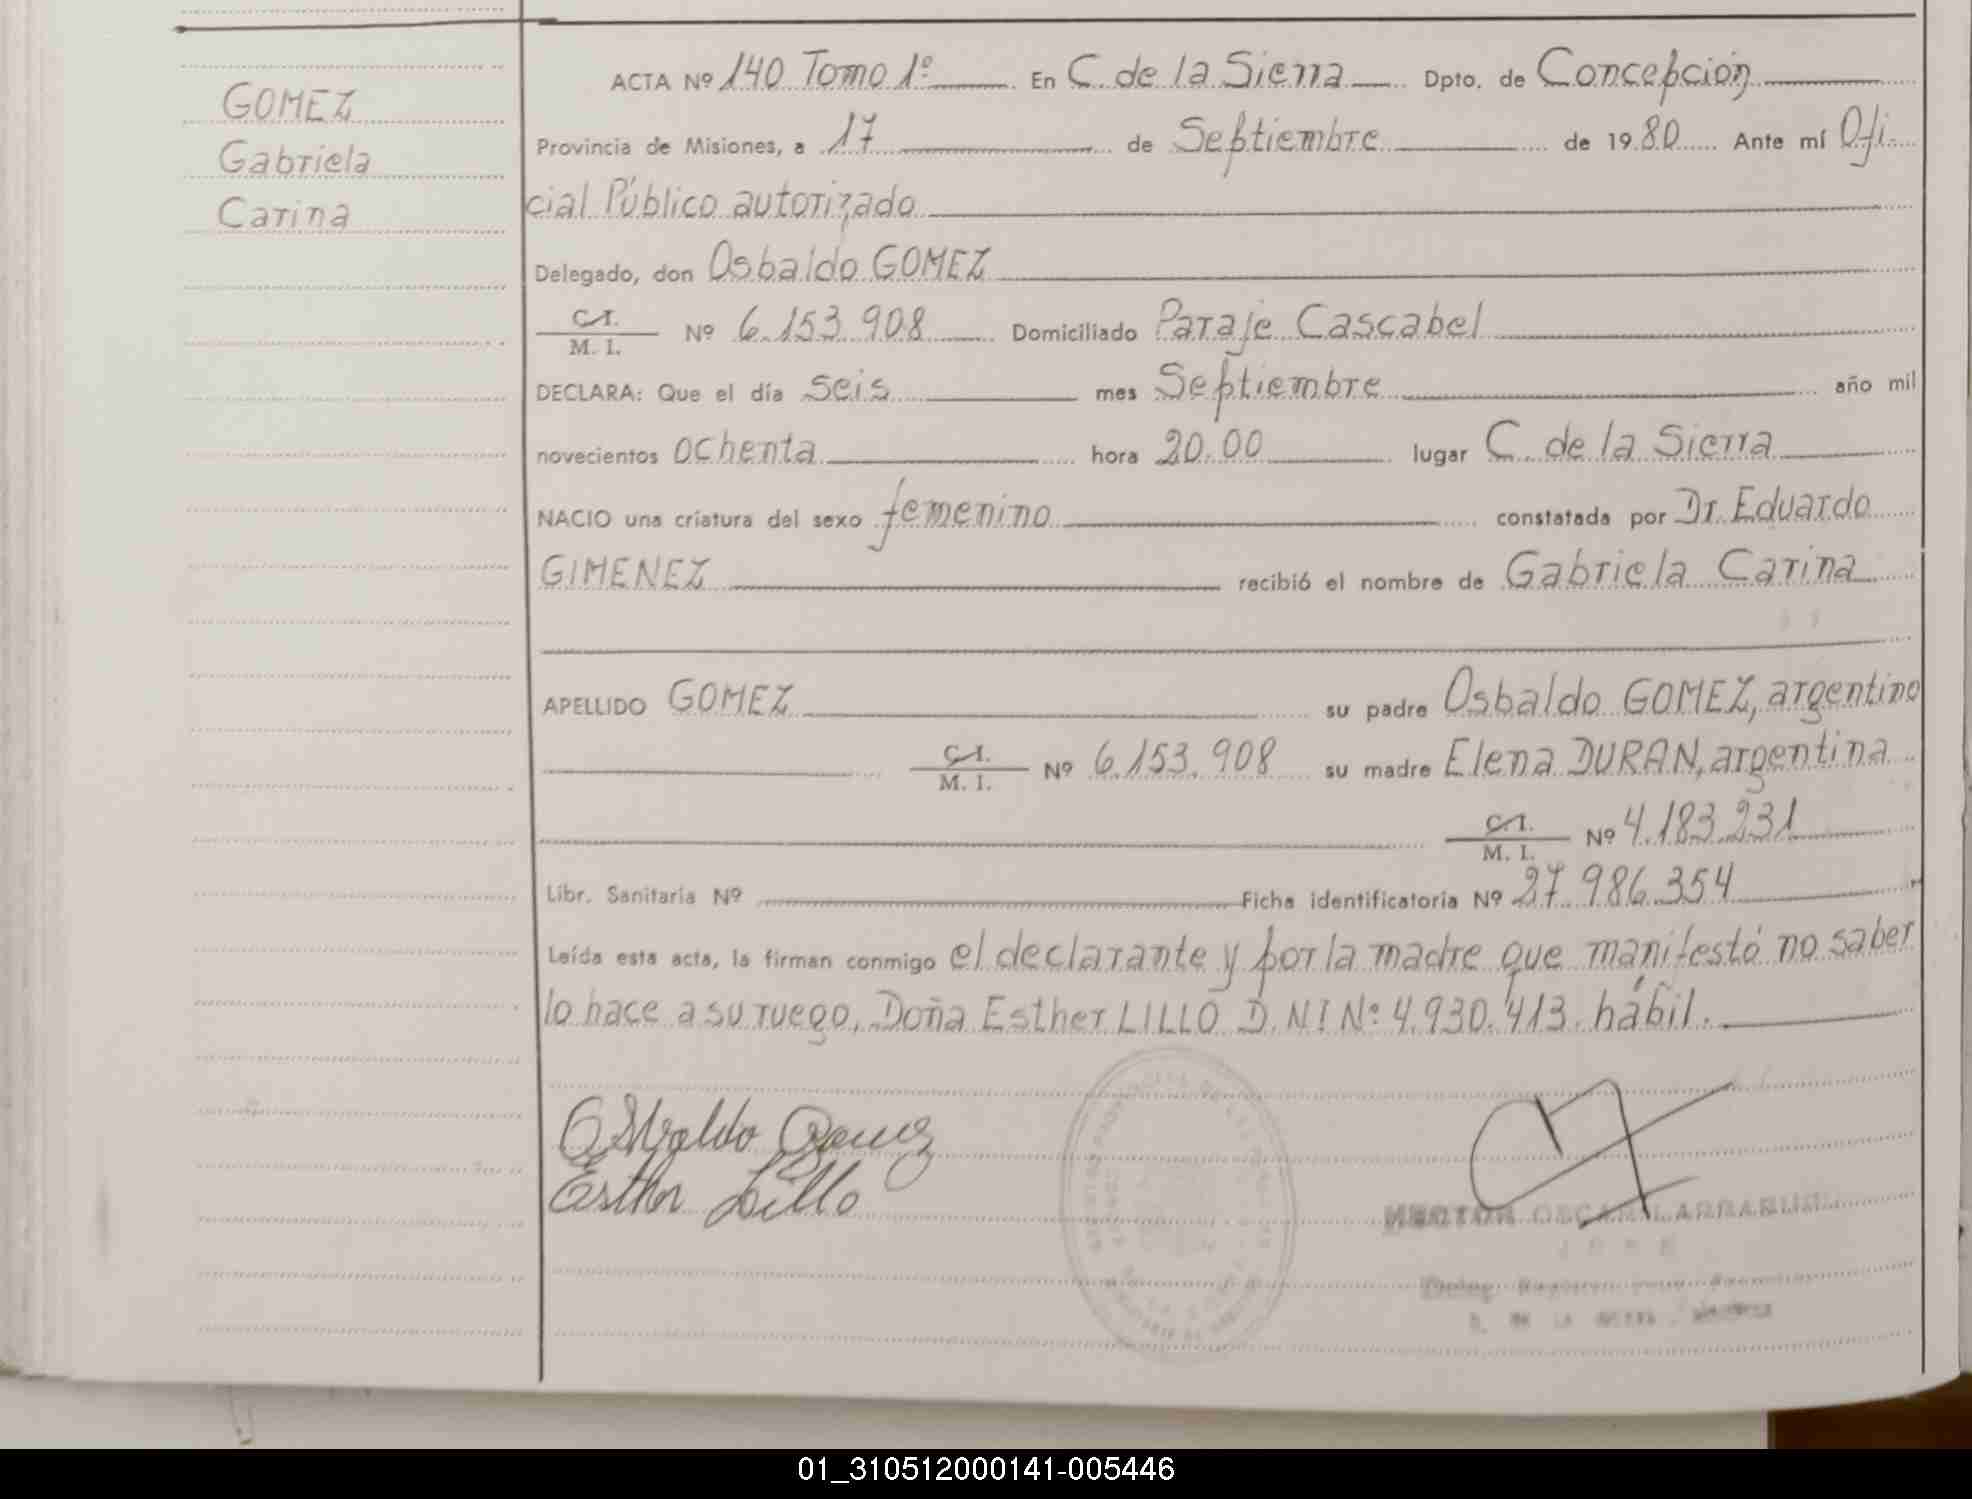 GOMEZ
Gabriela
Carina
ACTA Nº 140 Tomo 1º En C. de la Sierra Dpto. de Concepción
Provincia de Misiones, a 17 de Septiembre de 1980 Ante mí Ofi-
cial Público autorizado
Delegado, don Osbaldo GOMEZ
C.I.
M. I. Nº 6.153.908 Domiciliado Paraje Cascabel
DECLARA: Que el día seis mes Septiembre año mil
novecientos ochenta hora 20.00 lugar C. de la Sierra
NACIO una criatura del sexo femenino constatada por Dr. Eduardo
GIMENEZ recibió el nombre de Gabriela Carina
APELLIDO GOMEZ su padre Osbaldo GOMEZ, argentino
C.I.
M. I. Nº 6.153.908 su madre Elena DURAN, argentina
C.I.
M. I. Nº 4.183.231
Libr. Sanitaria Nº Ficha identificatoria Nº 27.986.354
Leída esta acta, la firman conmigo el declarante y por la madre que manifestó no saber
lo hace a su ruego, Doña Esther LILLO D.N.I Nº 4.930.413. hábil.
Osvaldo Gomez
Esther Lillo
HECTOR OSCAR
JEFE
01_310512000141-005446